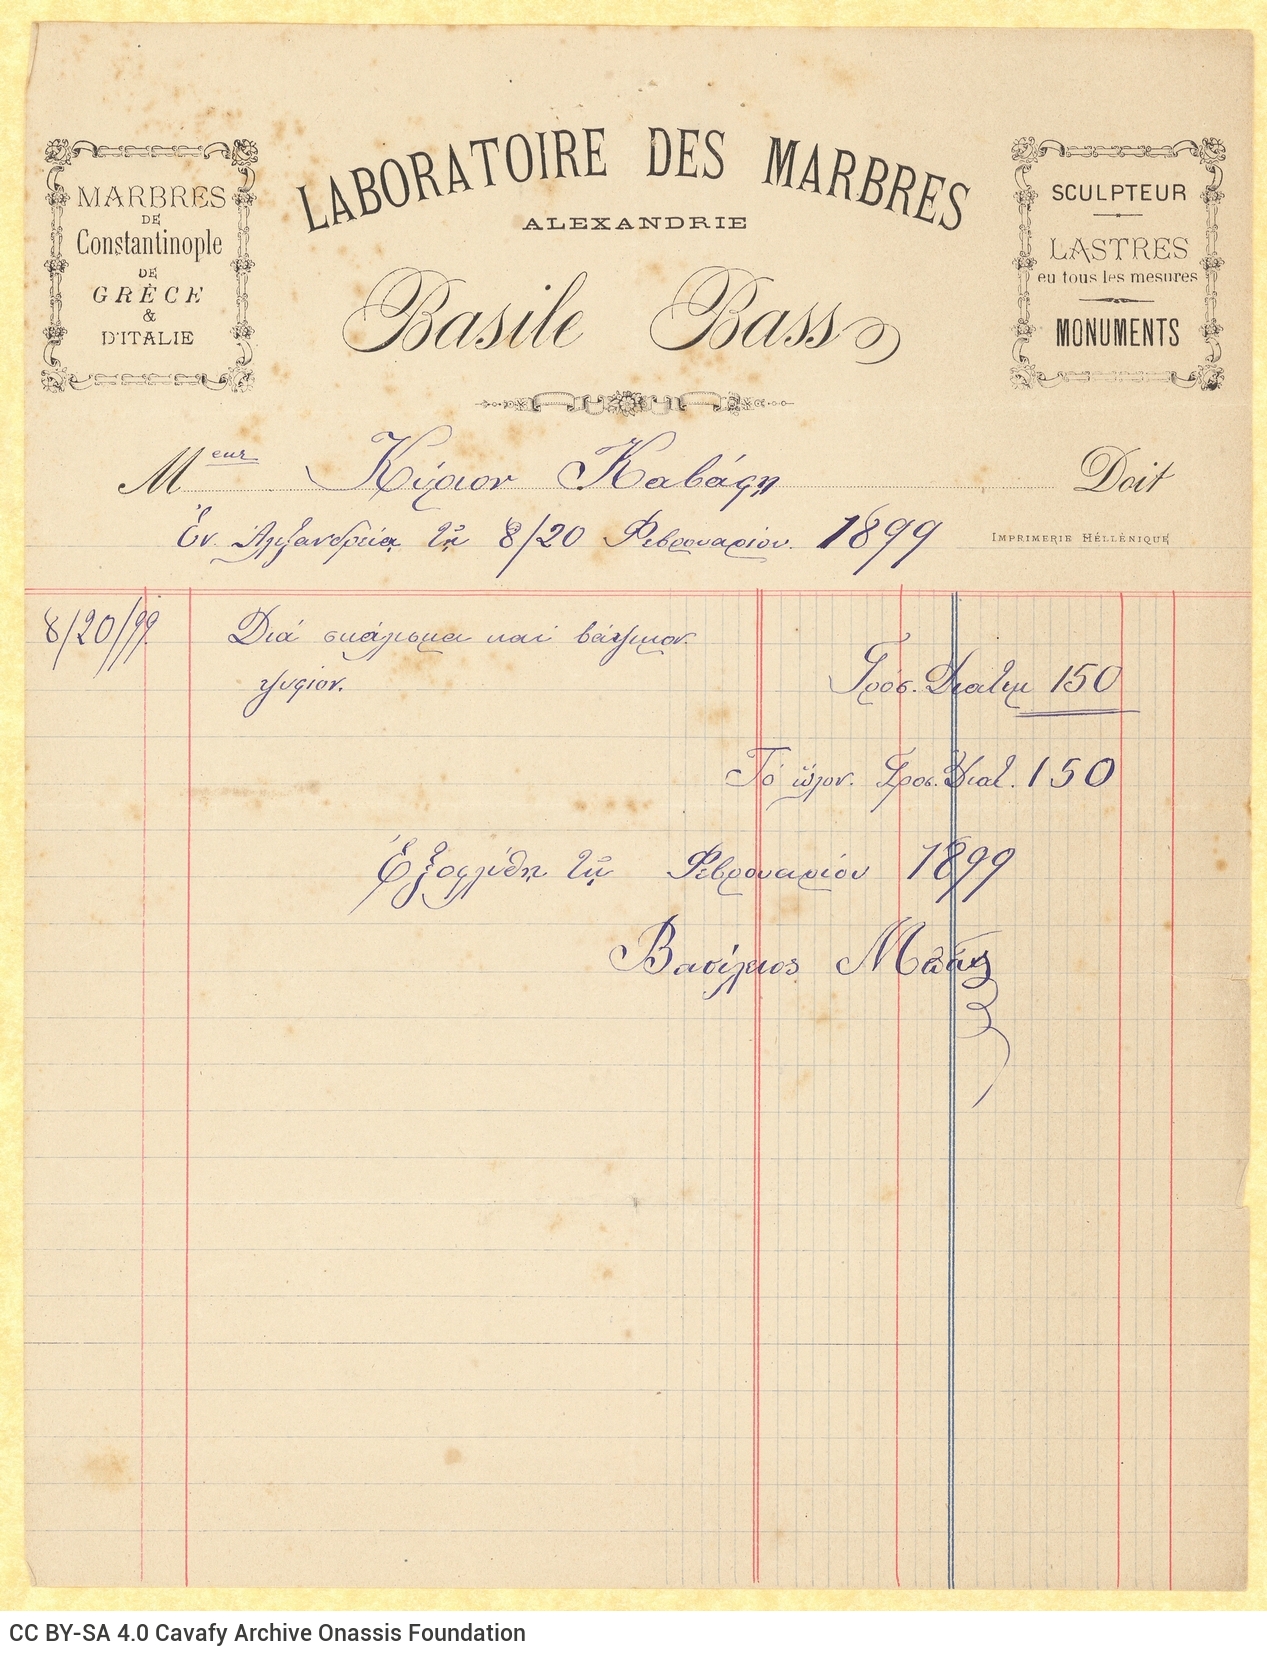 LABORATOIRE DES MARBRES
ALEXANDRIE
Basile Bass
MARBRES
DE
Constantinople
DE
GRÈCE
&
D'ITALIE
SCULPTEUR
LASTRES
eu tous les mesures
MONUMENTS
Meur Κύριον Καβάφη Doit
Ἐν Ἀλεξανδρείᾳ τῇ 8/20 Φεβρουαρίου 1899
IMPRIMERIE HÉLLÈNIQUE
8/20/99 Διά σκάλισμα καί βάψιμον
Γρόσ. Διατιμ 150
Τό ὅλον. Γροσ. Διατ. 150
Ἐξοφλήθη τῇ Φεβρουαρίου 1899
Βασίλειος Μπᾶς
CC BY-SA 4.0 Cavafy Archive Onassis Foundation